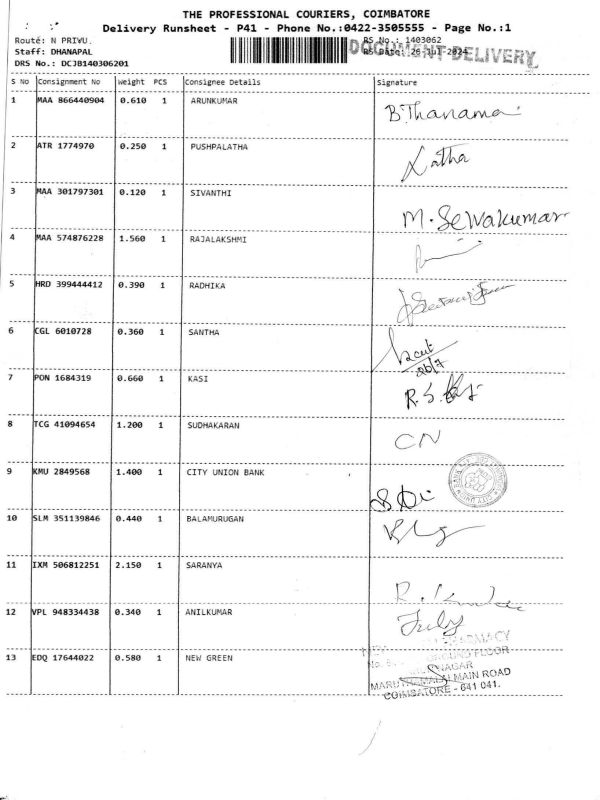 THE PROFESSIONAL COURIERS, COIMBATORE
Delivery Runsheet - P41 - Phone No.:0422-3505555 - Page No.:1
Route: N PRIVU. RS No.: 1403062
Staff: DHANAPAL RS Date: 26-Jul-2024
DOCUMENT DELIVERY
DRS No.: DCJB140306201
S No Consignment No Weight PCS Consignee Details Signature
1 MAA 866440904 0.610 1 ARUNKUMAR B.Thanama
2 ATR 1774970 0.250 1 PUSHPALATHA Latha
3 MAA 301797301 0.120 1 SIVANTHI M. Selvakumar
4 MAA 574876228 1.560 1 RAJALAKSHMI
5 HRD 399444412 0.390 1 RADHIKA
6 CGL 6010728 0.360 1 SANTHA 26/7
7 PON 1684319 0.660 1 KASI R.S.
8 TCG 41094654 1.200 1 SUDHAKARAN CN
9 KMU 2849568 1.400 1 CITY UNION BANK
10 SLM 351139846 0.440 1 BALAMURUGAN
11 IXM 506812251 2.150 1 SARANYA R.
12 VPL 948334438 0.340 1 ANILKUMAR
13 EDQ 17644022 0.580 1 NEW GREEN
PHARMACY
FLOOR
NAGAR
MARUTHAMALAI MAIN ROAD
COIMBATORE - 641 041.